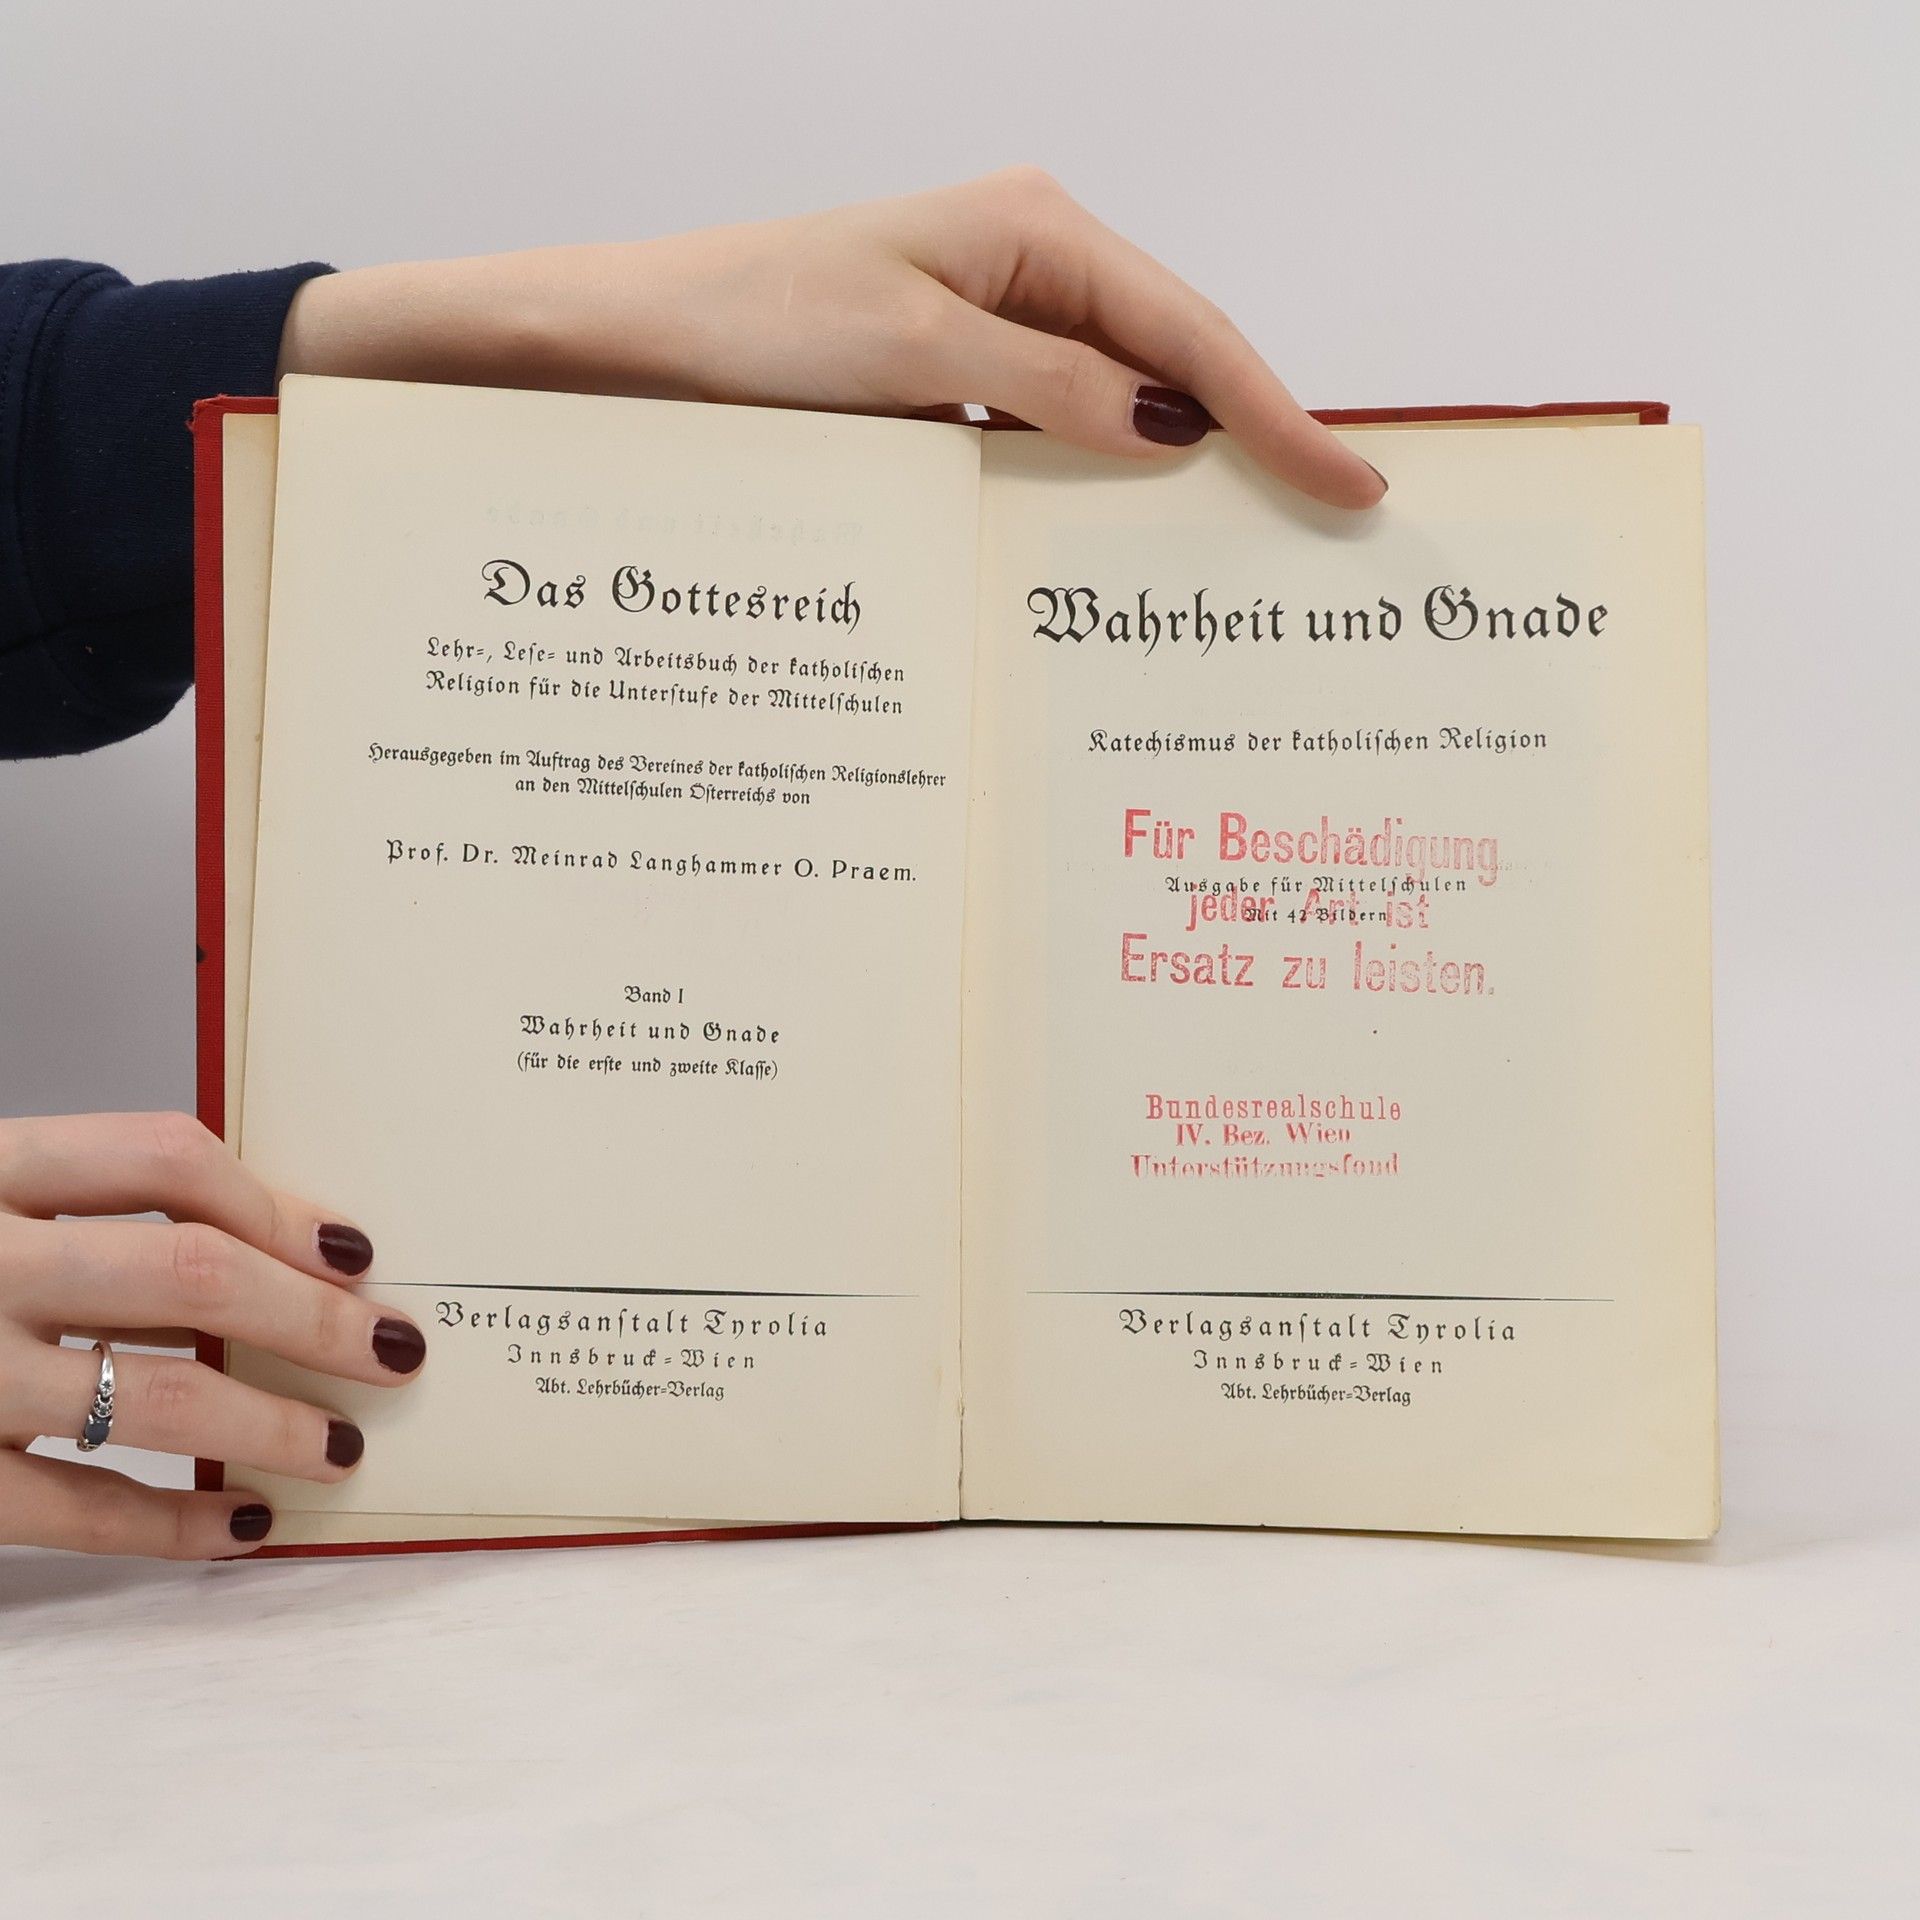 Das Gottesreich
Lehr-, Leſe- und Arbeitsbuch der katholiſchen
Religion für die Unterſtufe der Mittelſchulen
Herausgegeben im Auftrag des Vereines der katholiſchen Religionslehrer
an den Mittelſchulen Öſterreichs von
Prof. Dr. Meinrad Langhammer O. Praem.
Band I
Wahrheit und Gnade
(für die erſte und zweite Klaſſe)
Verlagsanſtalt Tyrolia
Innsbruck-Wien
Abt. Lehrbücher-Verlag
Wahrheit und Gnade
Katechismus der katholiſchen Religion
Für Beschädigung
Ausgabe für Mittelſchulen
jeder Art ist
Mit 42 Bildern
Ersatz zu leisten.
Bundesrealschule
IV. Bez. Wien
Unterstützungsfond
Verlagsanſtalt Tyrolia
Innsbruck-Wien
Abt. Lehrbücher-Verlag